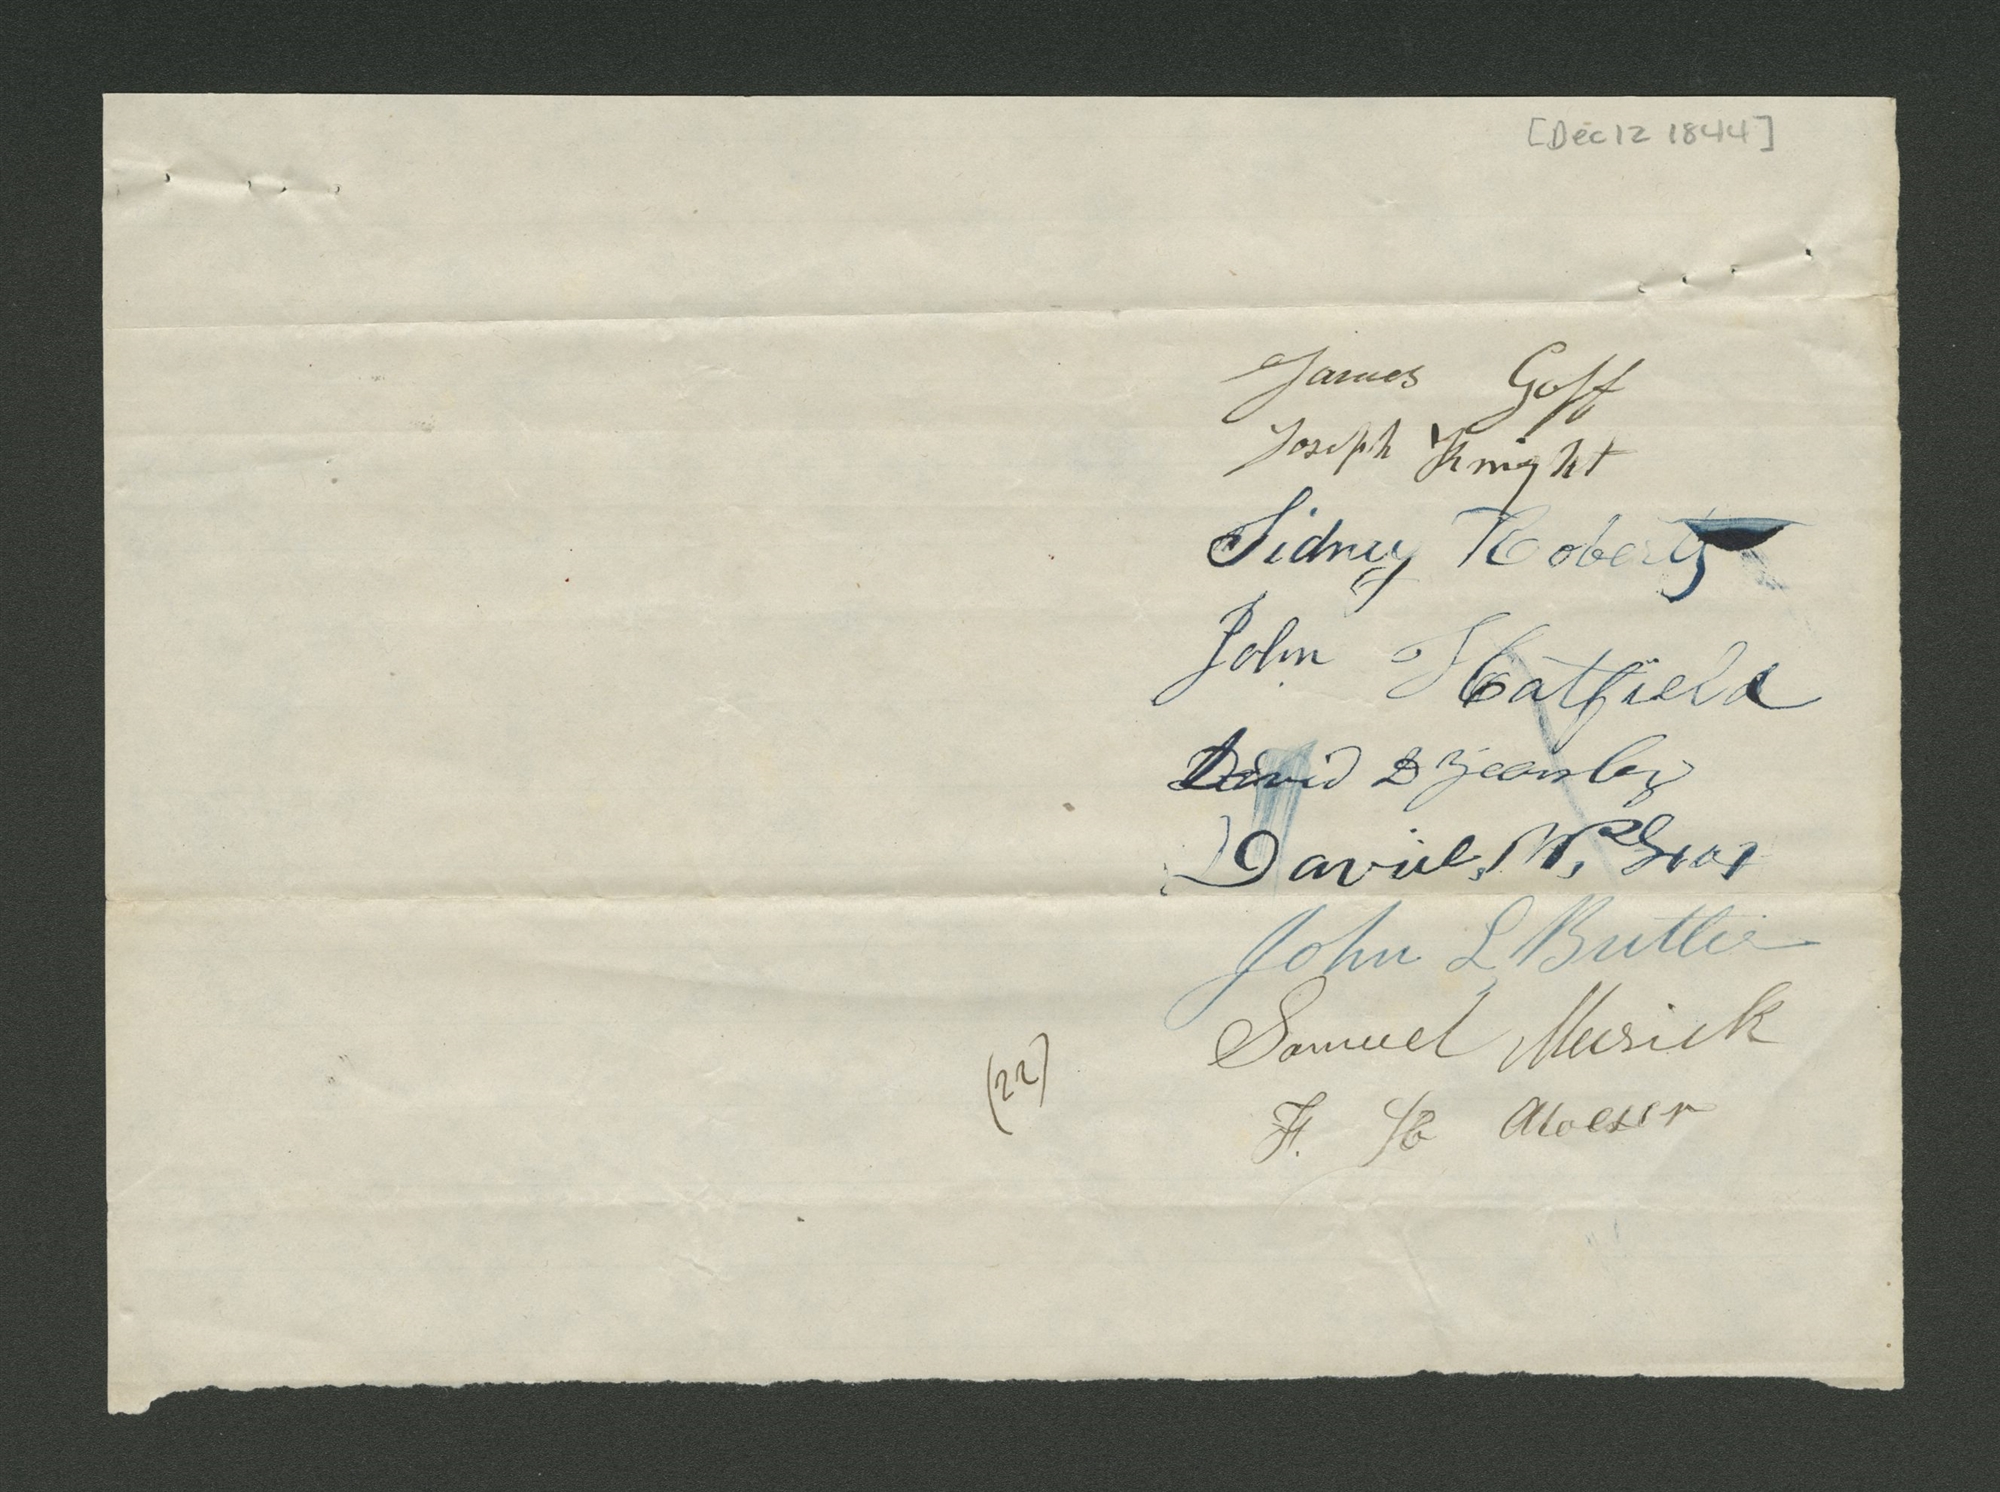 [Dec 12 1844]
James Goff
Joseph Knight
Sidney Roberts
John Hatfield
David D Yearsley
David. W.
John L Butler
Samuel Musick
(22)